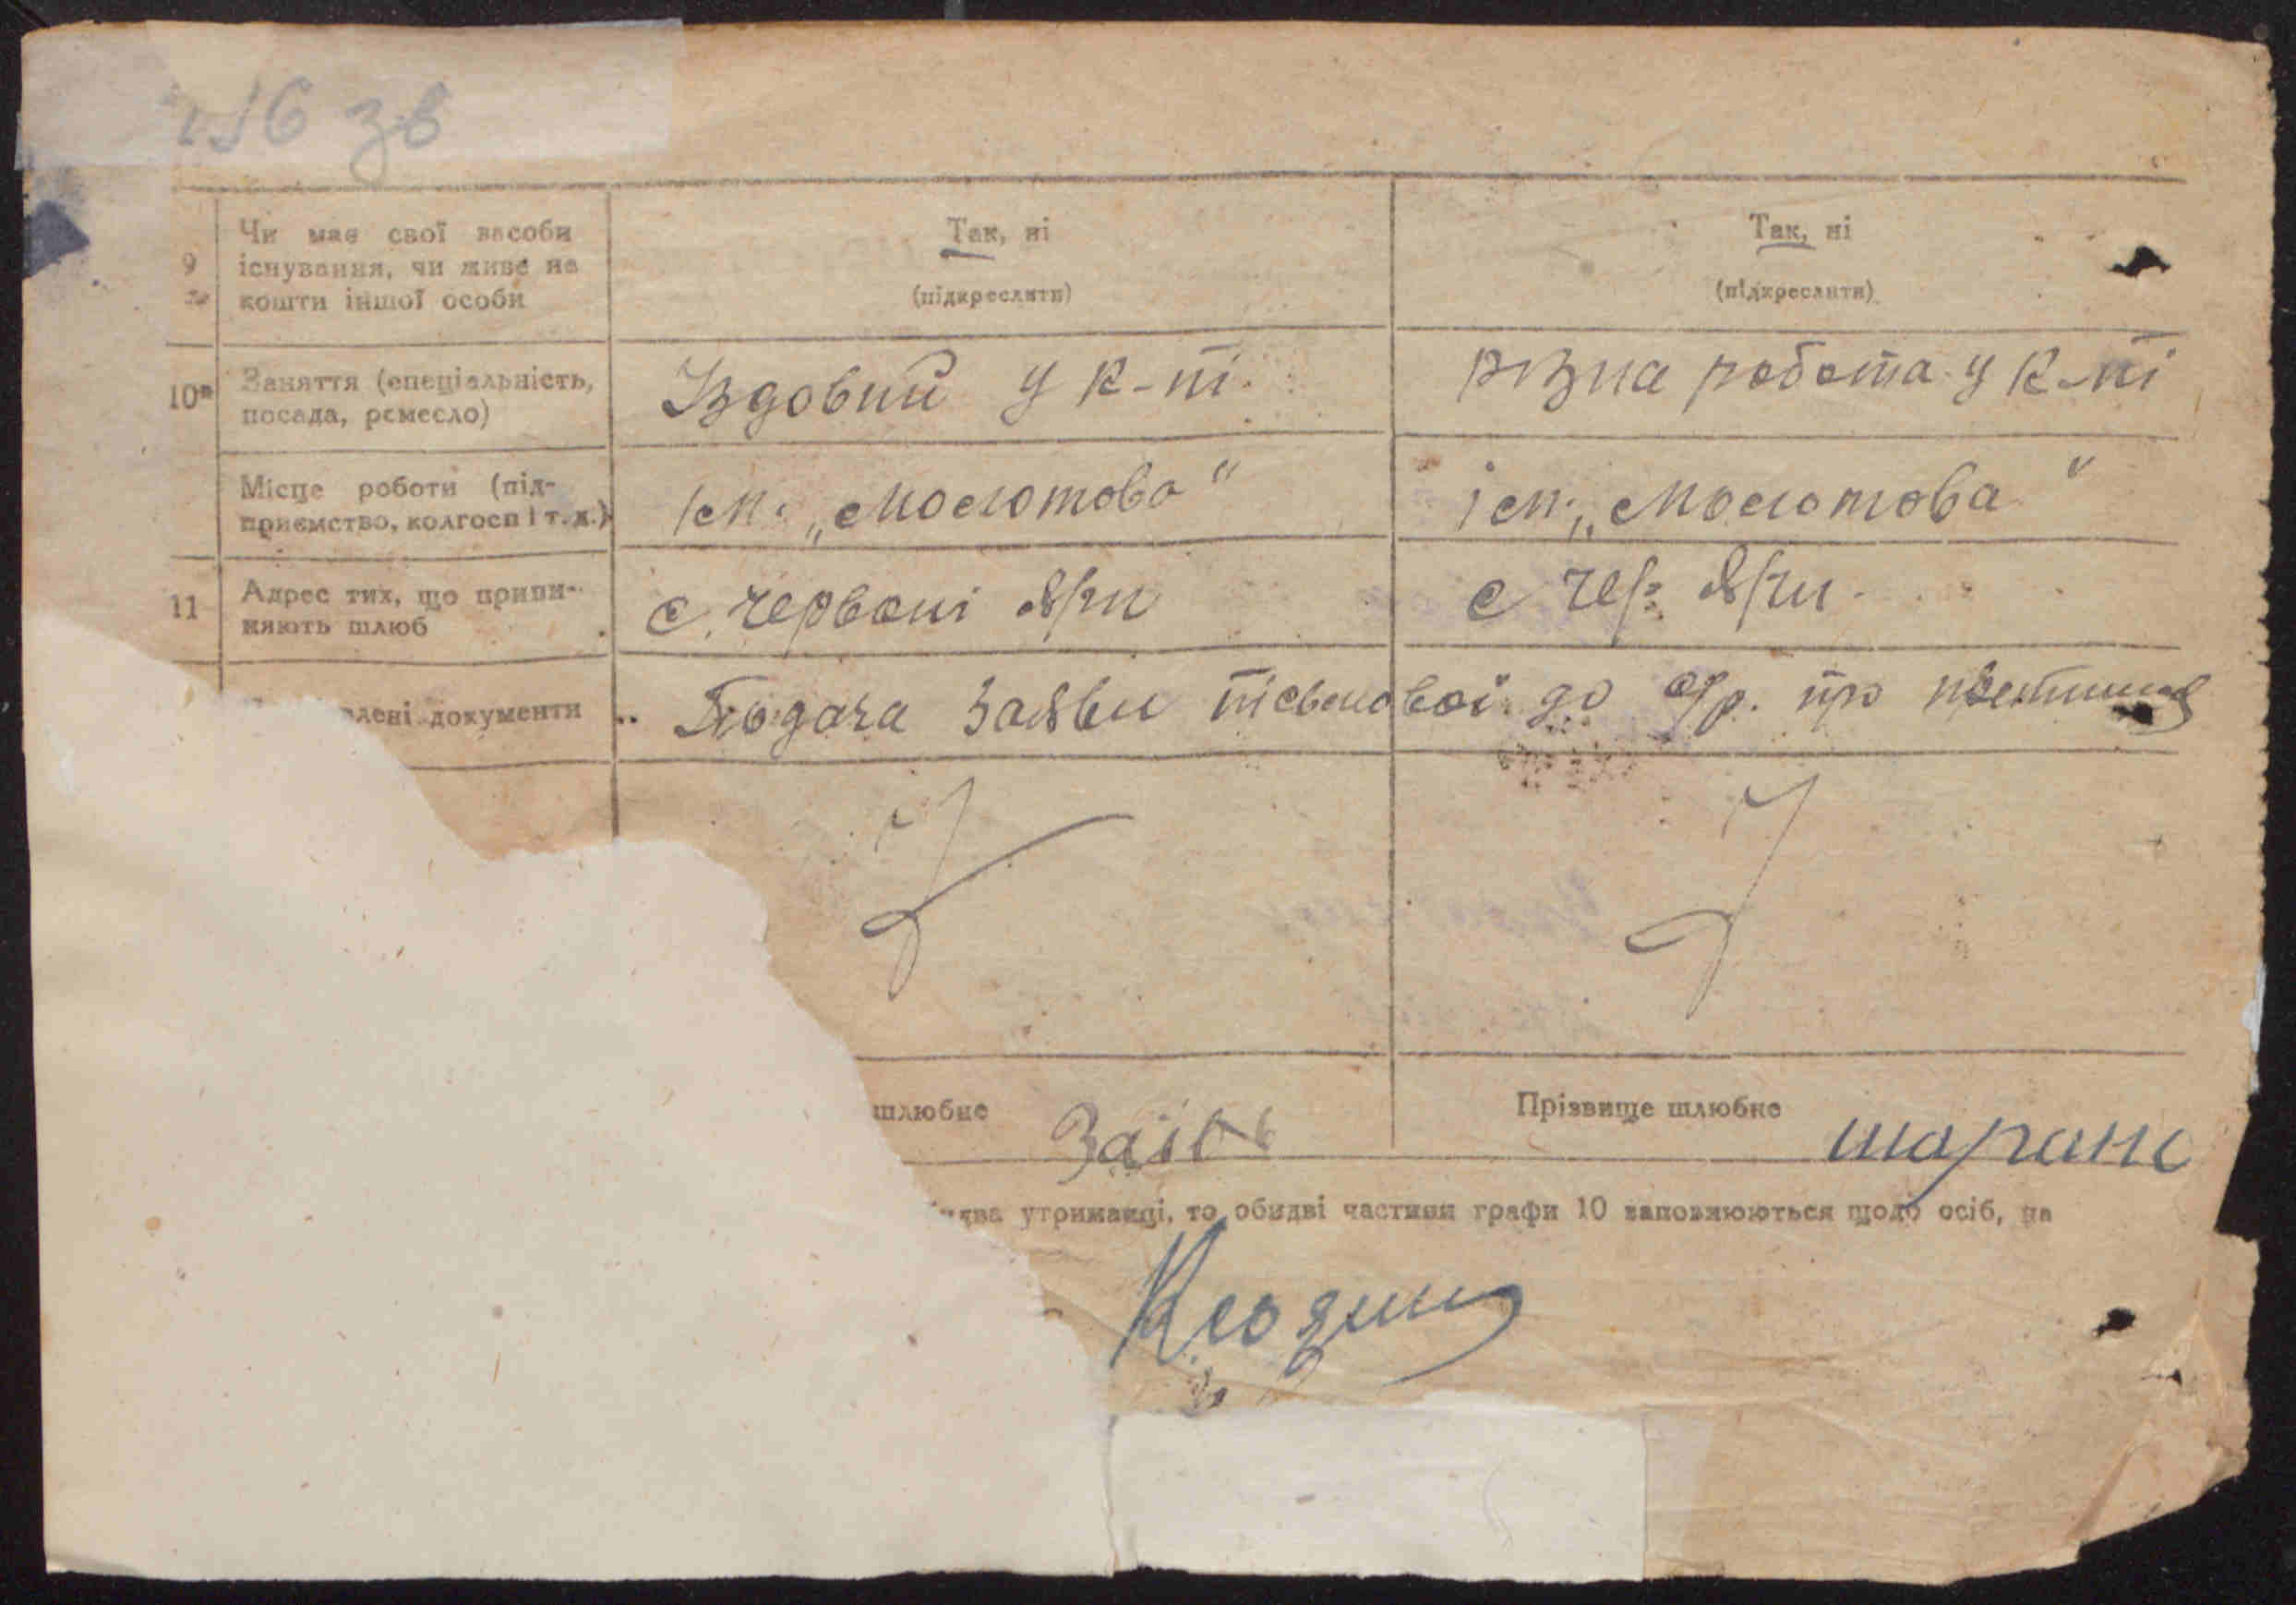 156 зв
9
Чи має свої засоби
існування, чи живе на
кошти іншої особи
Так, ні
(підкреслити)
Так, ні
(підкреслити)
10
Заняття (спеціальність,
посада, ремесло)
Їздовий у к-пі
різна робота у к-пі
Місце роботи (під-
приємство, колгосп і т. д.)
ім. „Молотова"
ім. „Молотова"
11
Адрес тих, що припи-
няють шлюб
с. Червоні Яри
с Чер. Яри.
лені документи
Подача заяви письмової до про
шлюбне
Заїць
Прізвище шлюбне
утриманці, то обидві частини графи 10 заповнюються щодо осіб, на